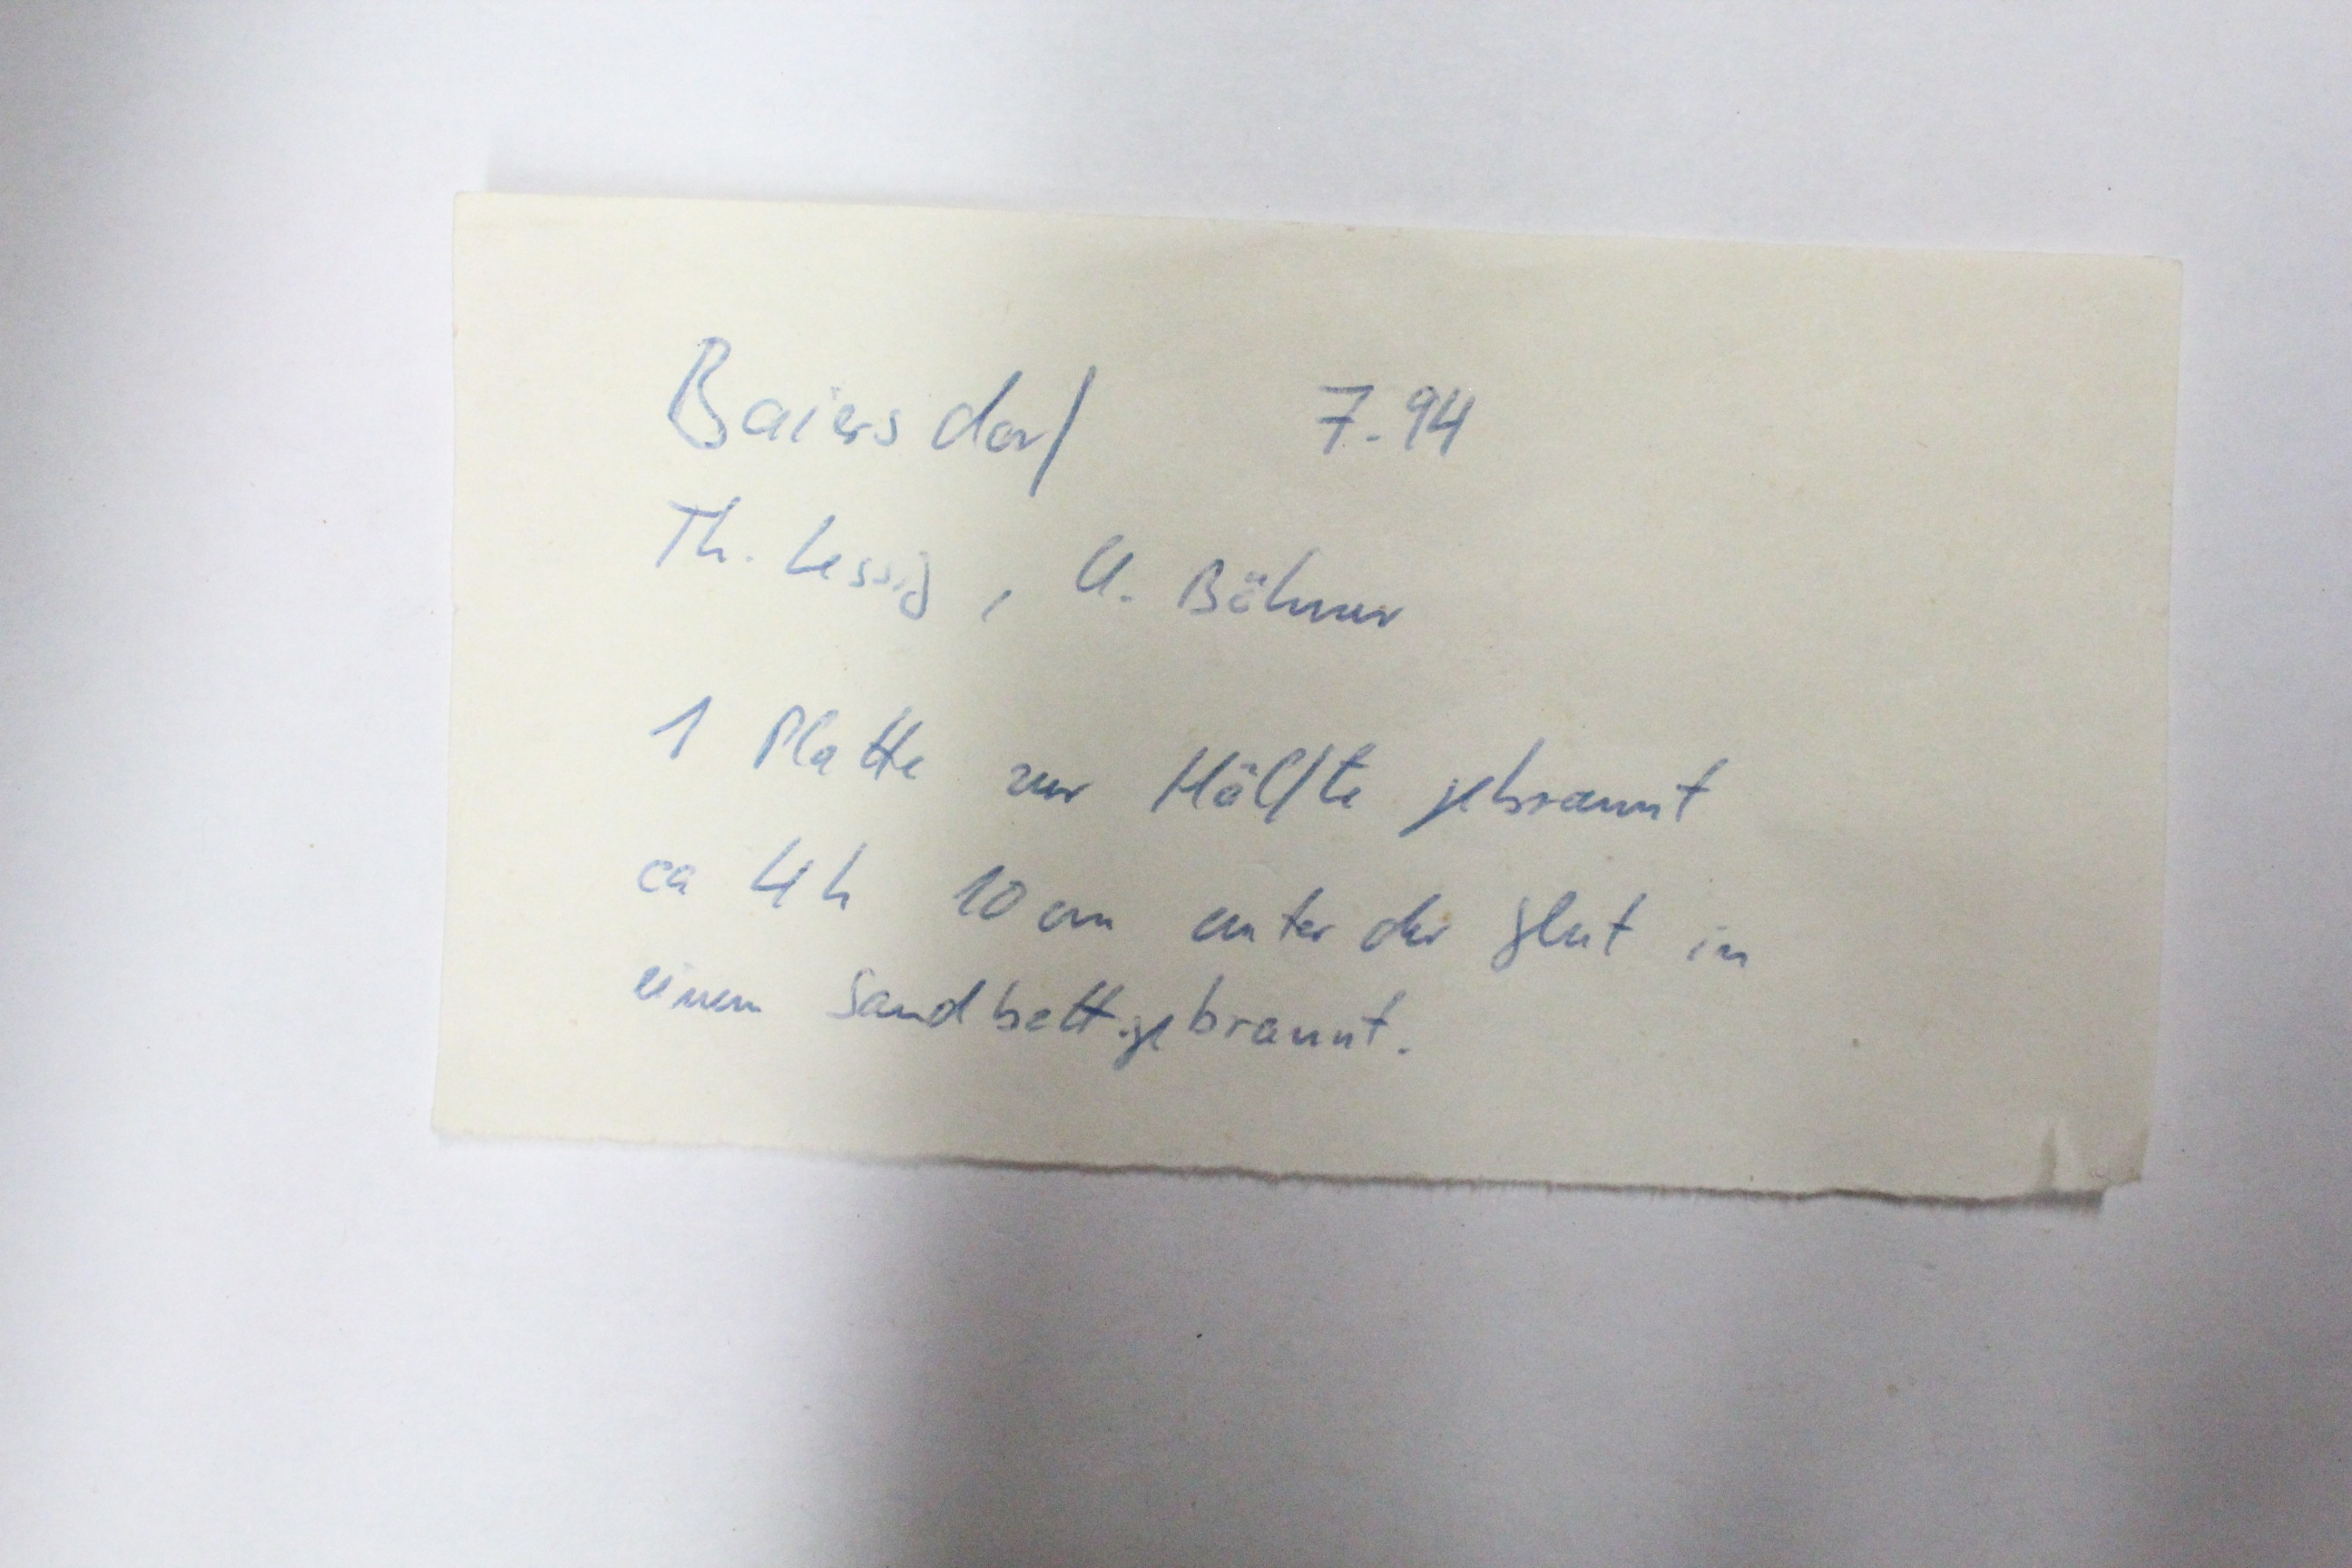 Baiersdorf 7.94
Th. Lessig, U. Böhmer
1 Platte zur Hälfte gebrannt
ca 4h 10 cm unter der Glut in
einem Sandbett gebrannt.